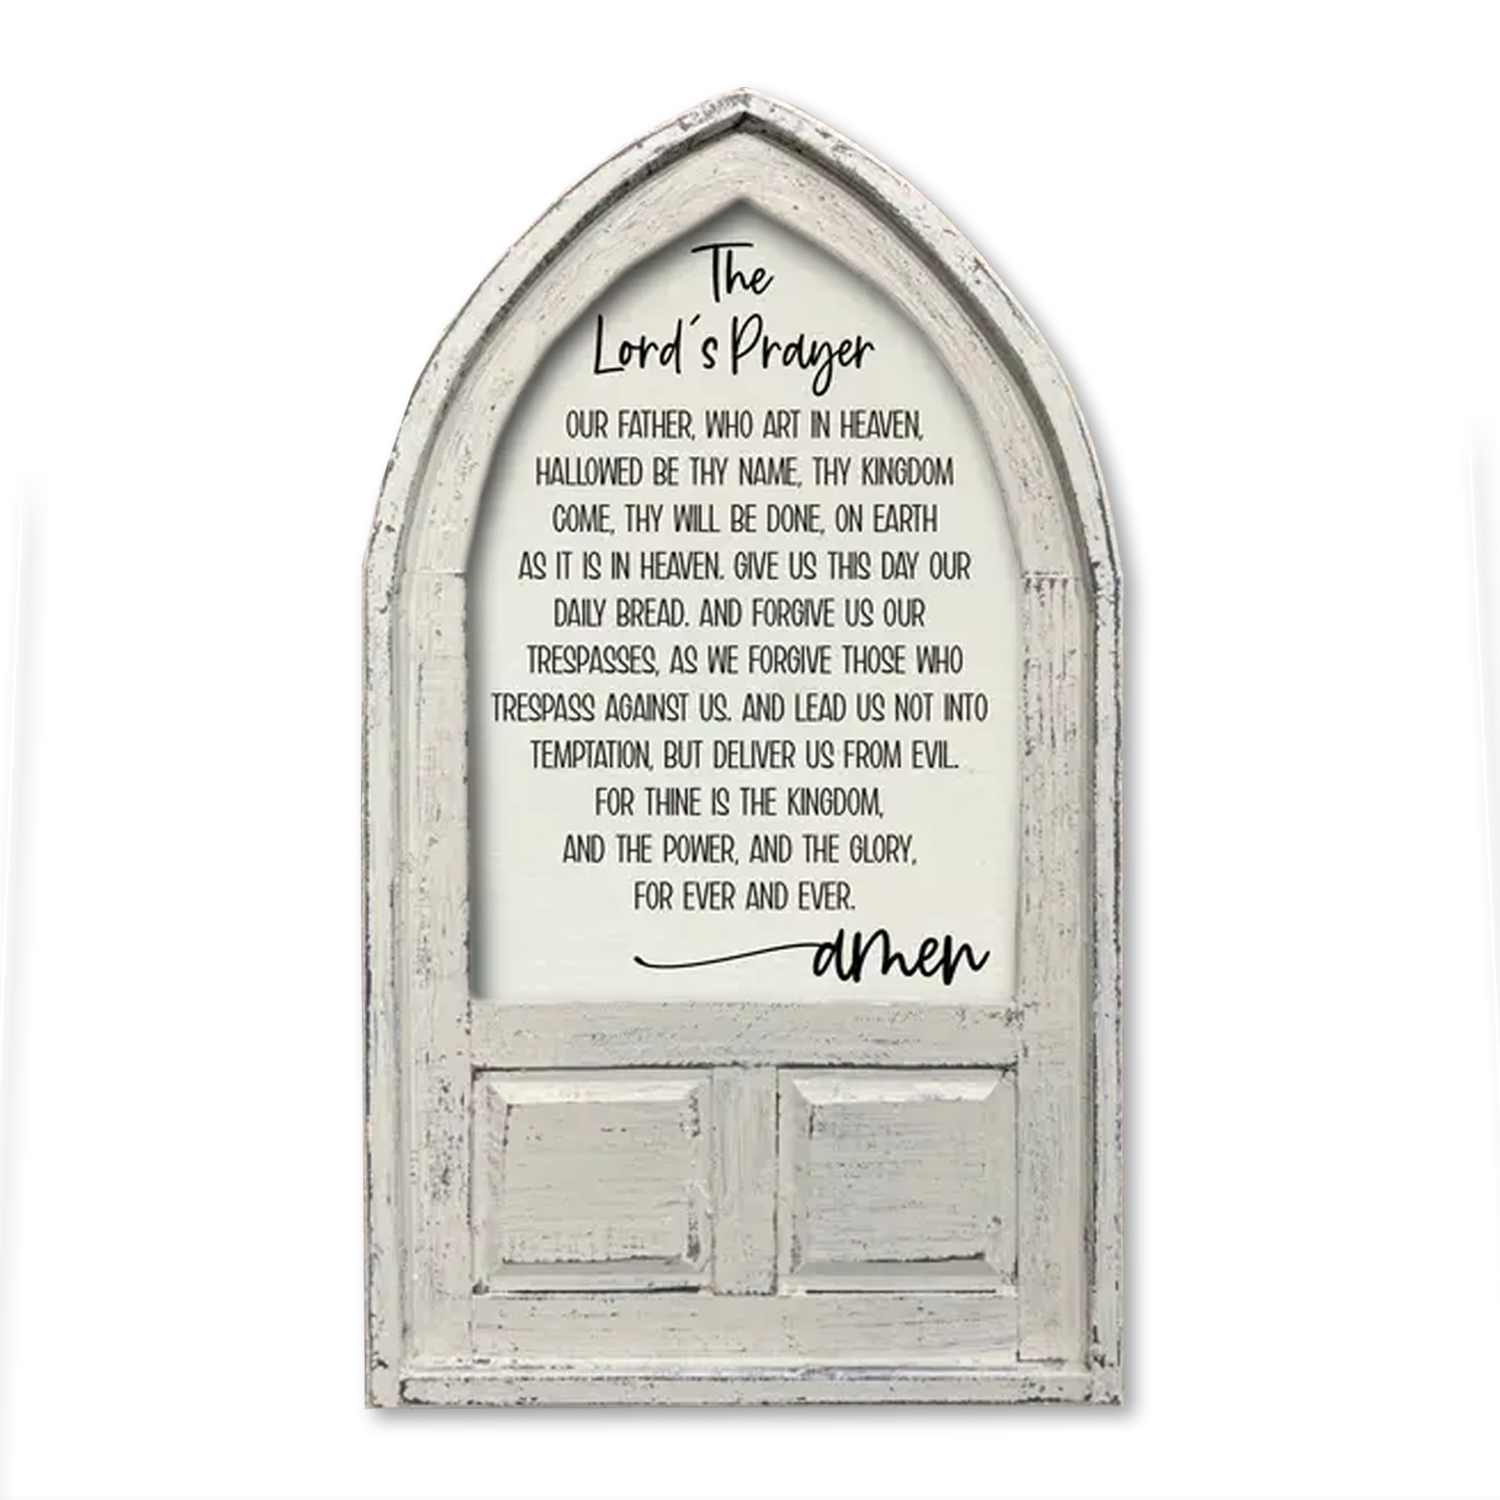 The
Lord´s Prayer
OUR FATHER, WHO ART IN HEAVEN,
HALLOWED BE THY NAME, THY KINGDOM
COME, THY WILL BE DONE, ON EARTH
AS IT IS IN HEAVEN. GIVE US THIS DAY OUR
DAILY BREAD. AND FORGIVE US OUR
TRESPASSES, AS WE FORGIVE THOSE WHO
TRESPASS AGAINST US. AND LEAD US NOT INTO
TEMPTATION, BUT DELIVER US FROM EVIL.
FOR THINE IS THE KINGDOM,
AND THE POWER, AND THE GLORY,
FOR EVER AND EVER.
amen